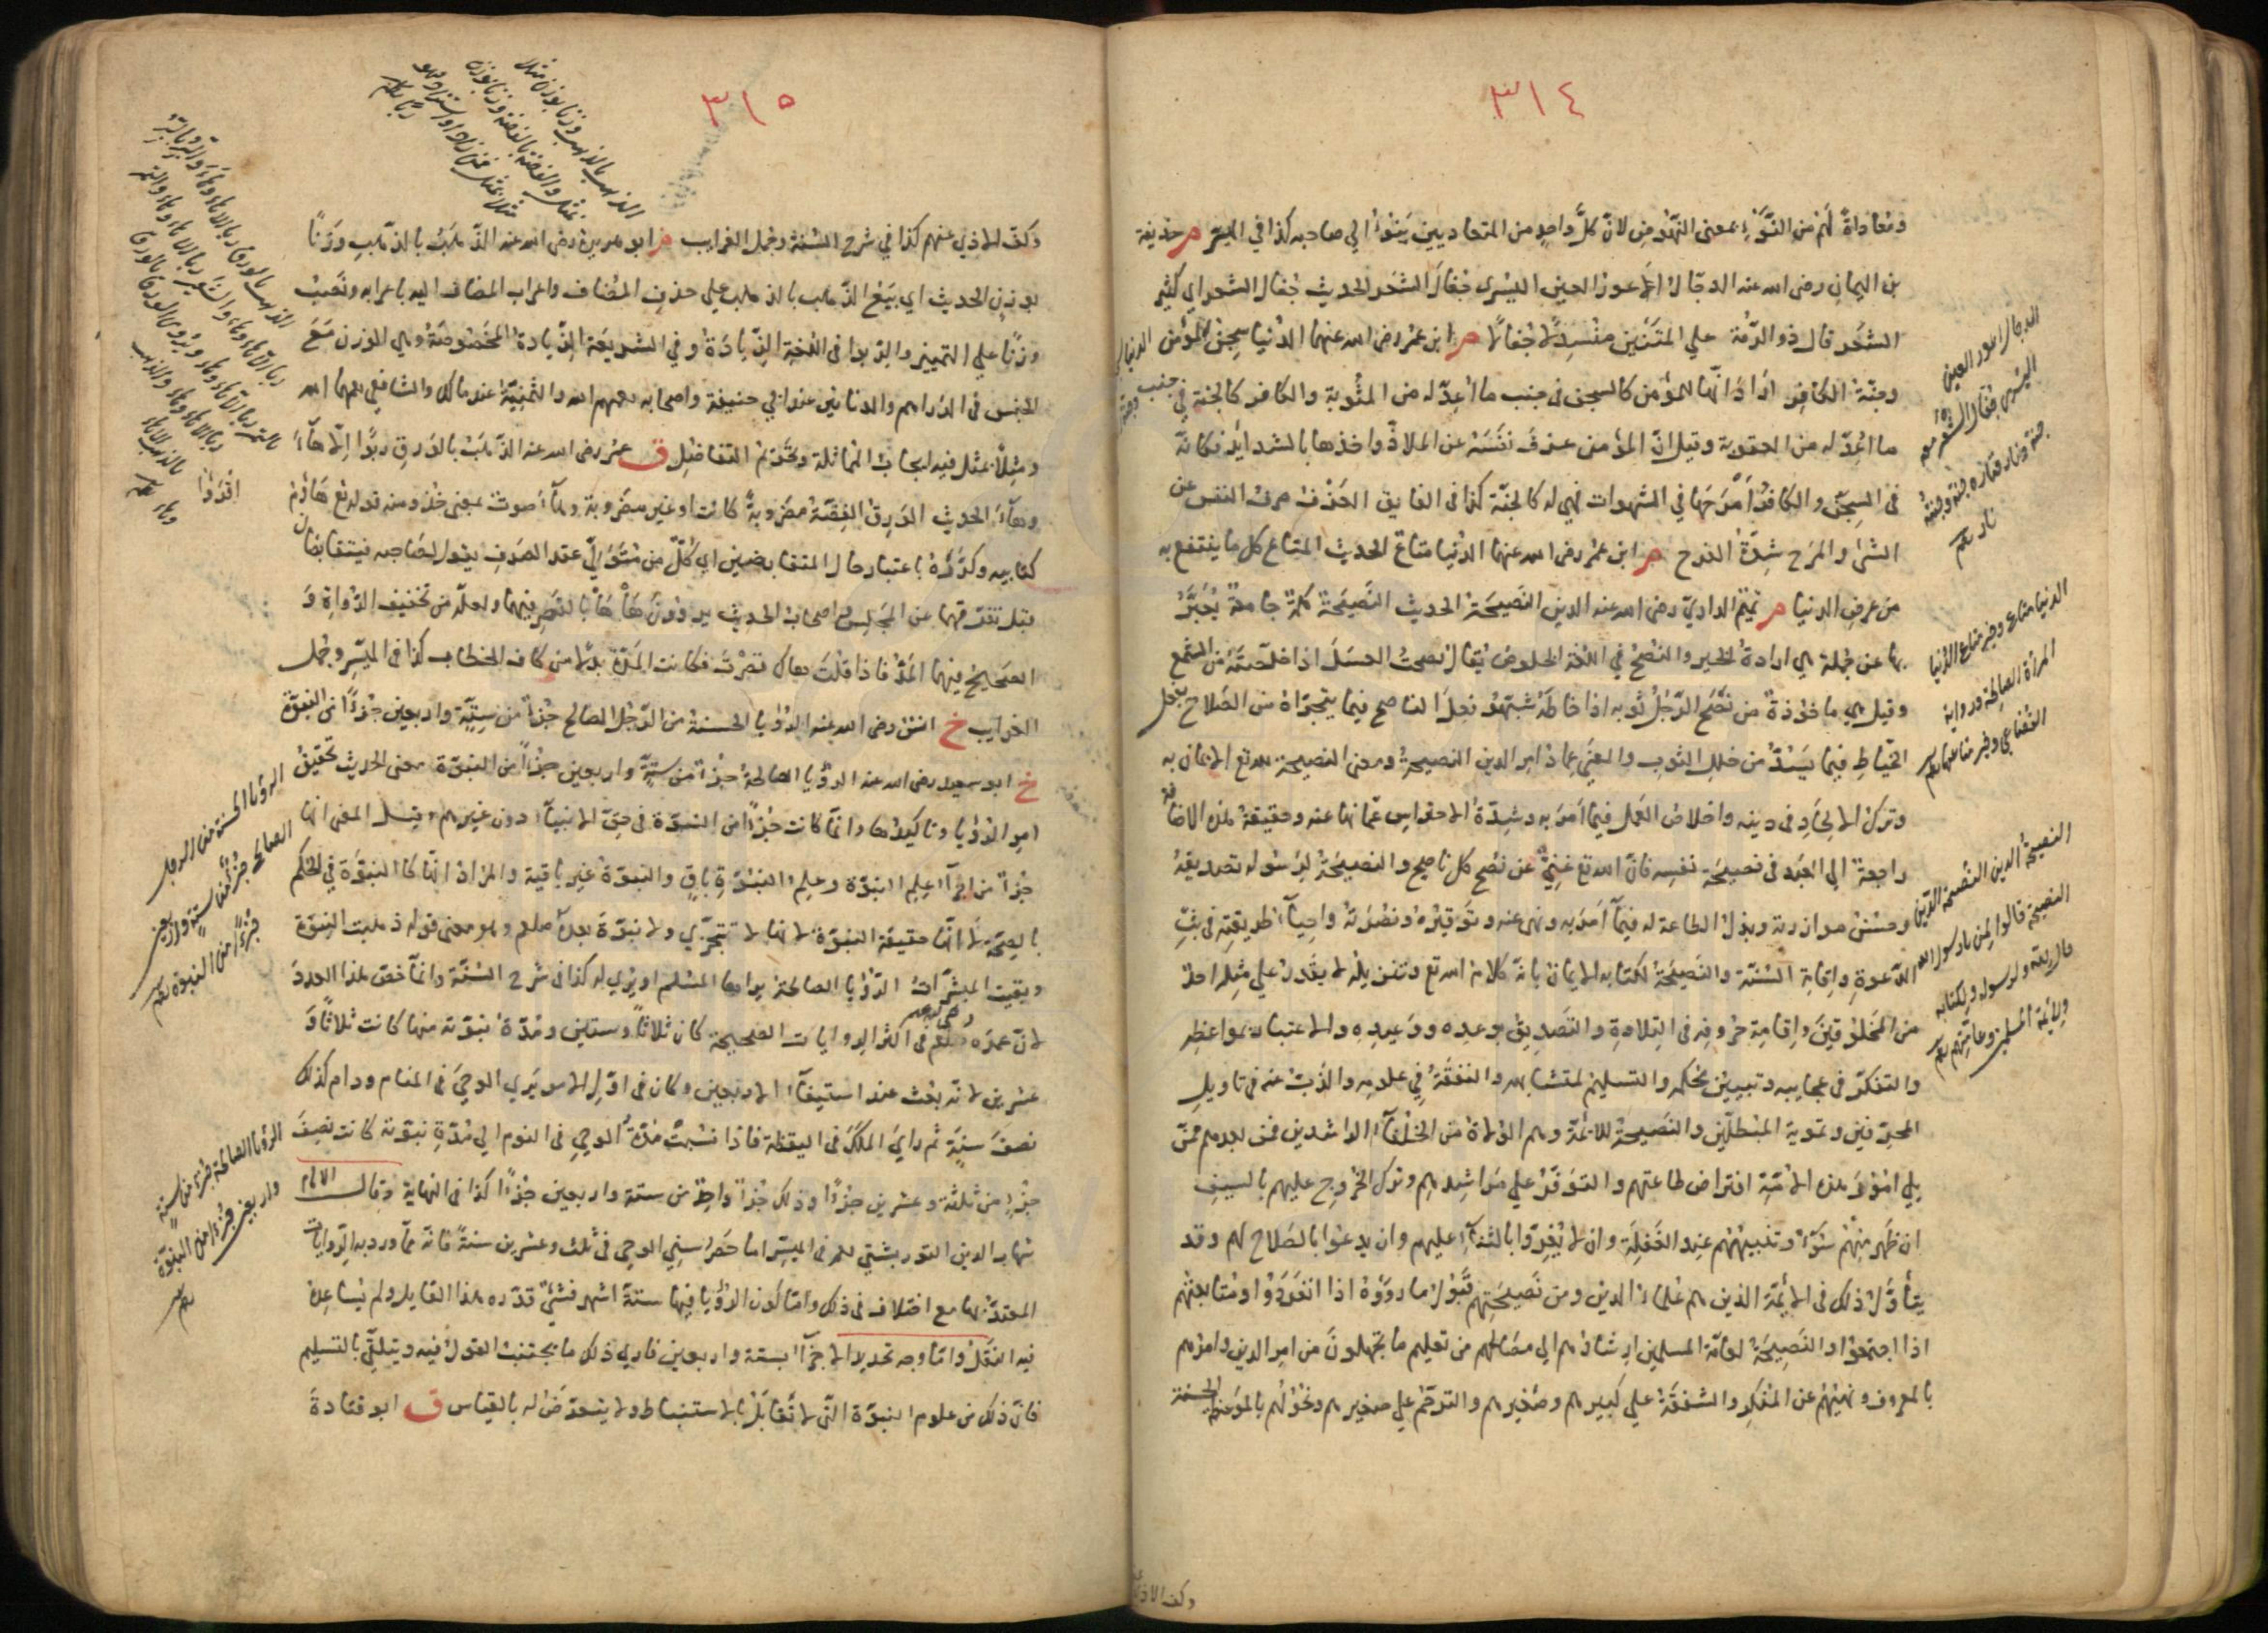 ٣١٤
ومعاداةً لهم من النَّوْءِ بمعنى النهوض لانّ كلَّ واحدٍ من المتعاديين يَنُوْءُ الي صاحبه كذا في الميسّر م حذيفة
بن اليمان رضى الله عنه الدجّال اَعور العين اليسرى جُفالُ الشعر الحديث جُفال الشعر اي كثير
الشعر قال ذو الرُّمّة علي المتنَين منسدِلًا جُفالًا م ابن عمر رضى الله عنهما الدنيا سِجنُ المؤمن
وجنّةُ الكافِر ارادَ انّها للمؤمن كالسجن في جنب ما اُعِدّ له من المثُوبة والكافر كالجنة في جنب
ما اُعِدّ له من العقوبة وقيل انّ المؤمن عزفَ نفسَهُ عن الملاذّ واخذها بالشدايد فكانه
في السِجن والكافرُ اَمرَحَها في الشهوات فهي له كالجنّة كذا في الفايق العَزْفُ صرفُ النفس عن
الشئ والمرَح شِدّةُ الفرح م ابن عمر رضى الله عنهما الدُنيا متاعٌ الحديث المتاع كل ما ينتفع به
من عرض الدنيا م تميم الداريّ رضى الله عنه الدين النصيحة الحديث النَصيحة كلمةٌ جامعةٌ يُعَبَّرُ
بها عن جُملة هي ارادةُ الخير والنصحُ في اللغة الخلوصُ يُقال نصحتُ العسَلَ اذا خلّصتَهُ من الشمع
وقيل هي ماخوذةٌ من نَصَحَ الرّجلُ ثوبه اذا خاطَهُ شبّهوا فعلَ الناصح فيما يتحرّاهُ من الصَلاح بفعل
الخيّاط فيما يَسُدّ من خلل الثوب والمعنى عِمادُ امر الدين النصيحةُ ومعنى النصيحة لله تع الايمان به
وتركُ الالحادِ في دينه واخلاصُ العمل فيما اَمَرَ به وشِدّةُ الاحتراس عمّا نهى عنه وحقيقةُ هذه الاضافة
راجعةٌ الي العبد في نصيحة نفسه فانّ الله تع غنيٌّ عن نصح كل ناصح والنصيحةُ لرَسُوله تصديقُهُ
وحسْنُ موازرته وبذلُ الطاعة له فيما اَمَرَ به ونهى عنه وتَوقيرُهُ ونُصْرَتُهُ واحياءُ طريقتِه في بَثِّ
الدّعوةِ واِقامةِ السُنّة والنَصيحةُ لكتابه الايمان بانّه كلام الله تع وتنزيله لا يَقْدِرُ علي مِثلِه احدٌ
من المَخلوقِينَ واِقامةِ حروفِه في التلاوةِ والتصديقُ بوعدِه ووَعيدِهِ والاعتبارُ بمواعظِه
والتفكرُ في عجايبِه وتبيينُ مُحكمِه والتسليمُ لمتشابهِه والتفقّهُ في علومِه والذَبُّ عنه في تاويلِ
المحرّفين وتمويه المُبْطِلين والنصيحةُ للائمّة وهم الولاةُ من الخُلفآءِ الراشدين فمَن بعدهم ممّن
يلي امُوْرَ هذه الامّة افتراض طاعتهم والتوفّرُ علي مَراشِدِهم وتركُ الخُروجِ عليهم بالسيفِ
ان ظَهَر مِنهم سُوءٌ وتنبيهُهُم عندَ الغَفْلةِ وان لا يُغَرّوا بالثناءِ عليهم وان يدعُوا بالصَلاح لهم وقد
يتأوَّلُ ذلك في الائمّة الذين هم علماءُ الدين ومن نَصيحتِهم قَبُولُ ما رووهُ اذا انفردُوا ومتابعتُهم
اذا اجتمعُوا والنَصِيحةُ لعامّة المسلمين ارشادُهم الي مصَالحهم من تعليم ما يَجهلونَ من امرِ الدين وامرُهم
بالمعروف ونهيُهم عن المنكر والشفقةُ علي كبيرِهم وصَغيرِهم والترحّمُ علي صغيرهم وتخوّلُهم بالموعظة الحسَنة
الدجال اعور العين
اليسرى جفال الشعر معه
جنة ونار فناره جنة وجنته
نار
الدنيا متاع وخير متاع الدنيا
المرأة الصالحة ورواية
القضاعي وخير متاعها
النصيحة الدين النصيحة الدين
النصيحة قالوا لمن يا رسول الله
قال لله ولرسوله ولكتابه
ولائمة المسلمين وعامتهم
وكف الاذى
٣١٥
وكفّ الاذي عنهم كذا في شرح السُنة وجُمل الغرايب م ابو هريرة رضى الله عنه الذّهَبُ بالذّهَبِ وَزْنًا
بوزنٍ الحديث اي بَيْعُ الذهب بالذهب علي حذفِ المضاف واعراب المضاف اليه باعرابه ونَصْبُ
وزنًا علي التمييز والرّبوا في اللغةِ الزيادَةُ وفي الشريعَةِ الزيادةُ المَخصُوصَةُ وهي الوزن مَعَ
الجنس في الدراهم والدنانير عند ابي حنيفة واصحابه رحمهم الله والثمنِيّة عند مالك والشافعي رحمهما الله
ومِثلًا بمثل فيه ايجابُ المماثلة وتَحريمُ التفاضل ق عمر رضى الله عنه الذّهَبُ بالوَرِق رِبًوا اِلّا هآءَ
وهآءَ الحديث الوَرِق الفِضّةُ مضروبةً كانت او غير مضروبة وهآءَ صوتٌ بمعنى خُذ ومنه قوله تع هَاؤُمُ اقرؤُا
كتابيه وكرّرهُ باعتبار حال المتقابضين اي كلٌّ من متَوليَّ عقد الصَرف يقول لصَاحبه فيتقابضان
قبل تفرّقهما عن المجلِس واصحابُ الحديث يروونَ هَا هَا بالقَصر فيهما ولعلّه من تخفيف الرُواةِ وَ
الصَحيحُ فيهما المَدُّ فاذا قلتَ هاك قصَرتَ فكانت المَدّة بدلًا من كاف الخطاب كذا في الميسّر وجُمل
الغرايب خ انسٌ رضى الله عنه الرؤيا الحسنةُ من الرّجُل الصالح جُزءٌ من سِتّةٍ واربعين جُزءًا من النبوّة
خ ابو سعيد رضى الله عنه الرؤيا الصالحةُ جزءٌ من ستةٍ واربعين جزءًا من النبوّة معنى الحديث تحقيقُ
امرِ الرؤيا وتاكيدُها وانّما كانت جُزءًا من النبوّة في حقِّ الانبياءِ دونَ غيرِهم وقيل المعنى انها
جُزءٌ من اجزآءِ عِلمِ النبوّة وعِلمُ النبُوّةِ باقٍ والنبوّةُ غير باقية والمرادُ انّها كالنبوّة في الحكم
بالصِحّة لا انّها حقيقة النبوّةِ لانها لا تتجزّي ولا نبوّةَ بعده صلعم وهو معنى قوله ذهبت النبوّة
وبقيت المبشّراتُ الرّؤيا الصالحة يراها المسْلم او يُرى له كذا في شرح السُنّة وانّما خصّ هذا العددَ
لانّ عمرَه صلعم في اكثر الروايات الصحيحة كان ثلاثًا وستين ومُدّةُ نبوّته منها كانت ثلاثًا وَ
عشرين لانّه بُعث عند استيفآءِ الاربعين وكان في اوّلِ الامر يَري الوحيَ في المنام ودام كذلك
نصفَ سنةٍ ثم رايَ الملَكَ في اليقظة فاذا نسَبتَ مُدّةَ الوحي في النوم الي مُدّةِ نبوّته كانت نصفَ
جزءٍ من ثلثة وعشرين جزءًا وذلك جُزءٌ واحدٌ من ستة واربعين جُزءًا كذا في النهاية وقال الامام
شهاب الدين التوربشتي في الميسّر اما حَصرُ سِني الوحي في ثلث وعشرين سنةً فانه مما ورد به الروايات
المعتدّ بها مع اختلاف في ذلك وامّا كون الرؤيا فيها ستةَ اشهر فشئٌ قدّره هذا القايل ولم يُساعِدهُ
فيه النقلُ وامّا وجه تحديد الاجزآءِ بستة واربعين فاري ذلك ما يجتنبُ القولُ فيه ويتلقّي بالتسليم
فانّ ذلك من علوم النبوّة التي لا تُقابَلُ بالاستنباط ولا يتعرّضُ له بالقياس ق ابو قتادةَ
الذهب بالذهب وزنا بوزن مثلا
بمثل والفضة بالفضة وزنا بوزن
مثلا بمثل فمن زاد او استزاد فهو
ربا
الذهب بالورق ربا الا هاء وهاء والبر بالبر
ربا الا هاء وهاء والشعير بالشعير ربا الا هاء وهاء والتمر
بالتمر ربا الا هاء وهاء ويروى الورق بالورق
ربا الا هاء وهاء والذهب
بالذهب ربا الا هاء
وهاء
الرؤيا الحسنة من الرجل
الصالح جزء من ستة واربعين
جزءًا من النبوة
الرؤيا الصالحة جزء من ستة
واربعين جزءا من النبوة